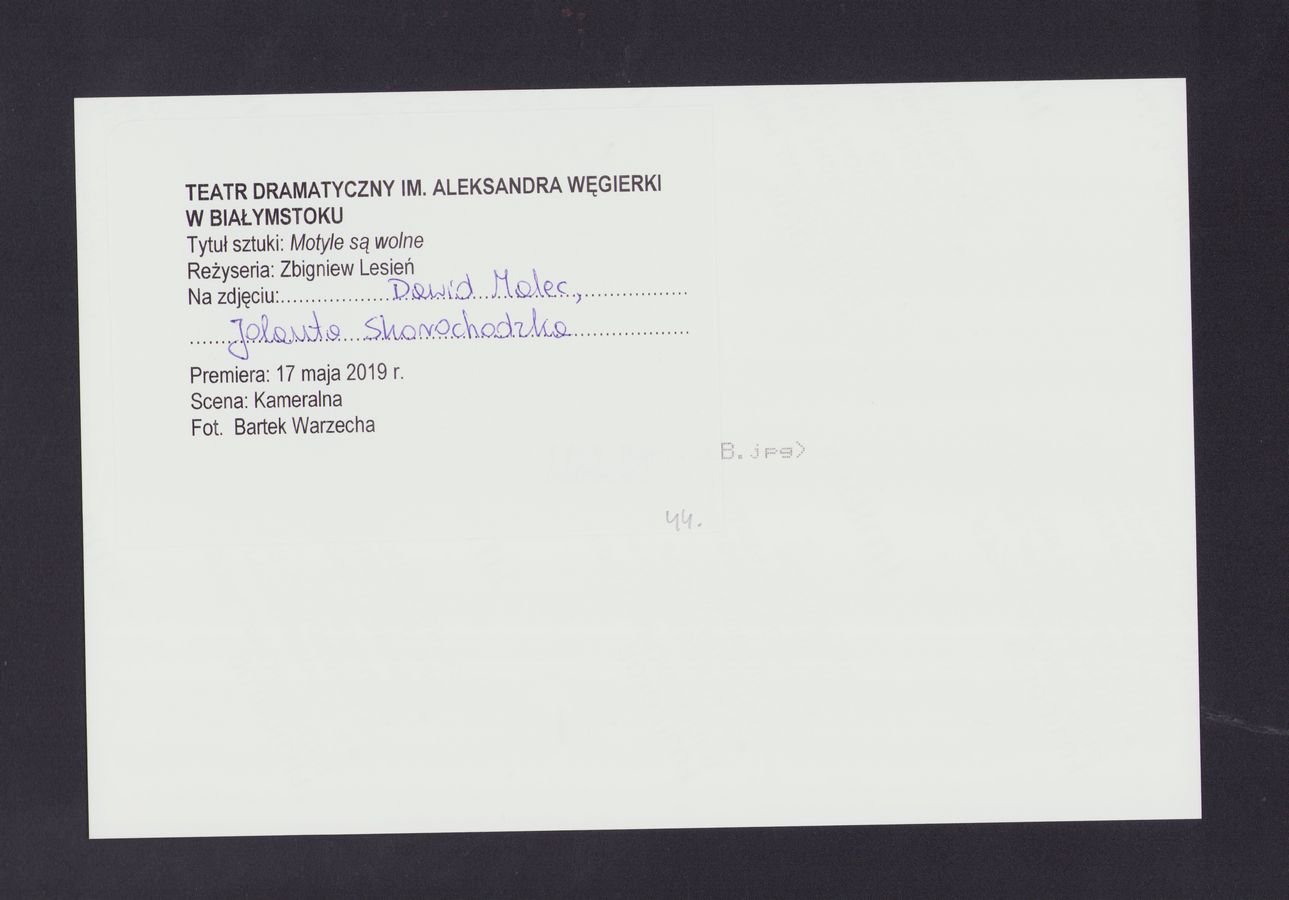 TEATR DRAMATYCZNY IM. ALEKSANDRA WĘGIERKI
W BIAŁYMSTOKU
Tytuł sztuki: Motyle są wolne
Reżyseria: Zbigniew Lesień
Na zdjęciu:..................Dawid Malec,..................
Jolanta Skorochodzka
Premiera: 17 maja 2019 r.
Scena: Kameralna
Fot. Bartek Warzecha
B.jpg>
44.